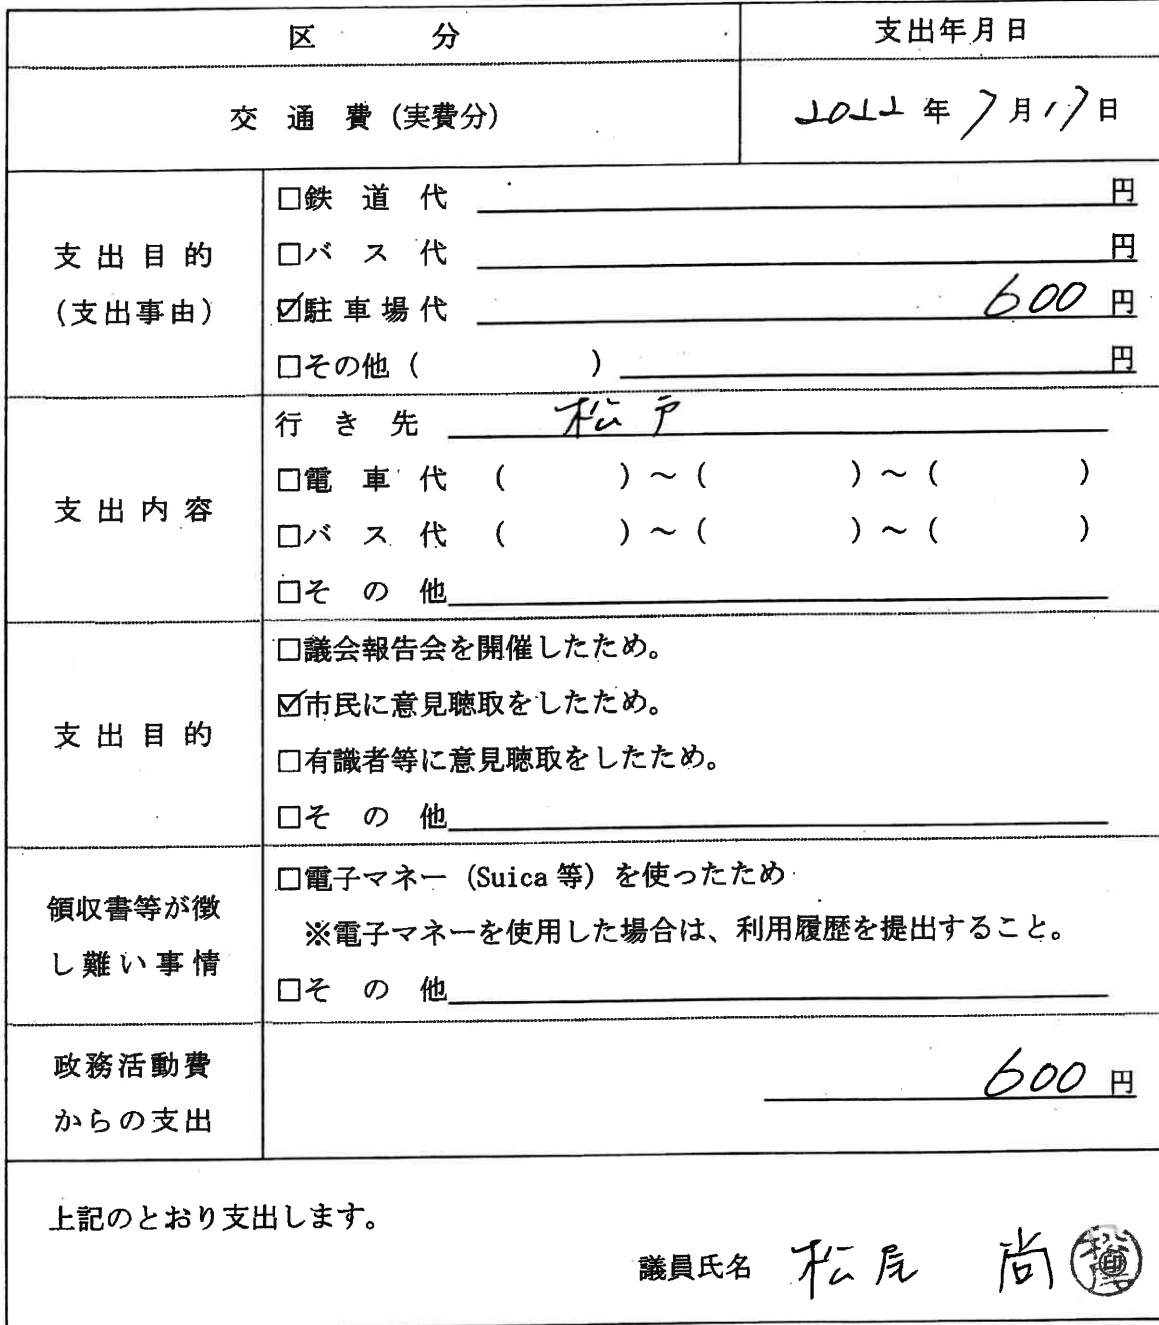 区 分 支出年月日
交 通 費 (実費分) 2022 年 7 月 17 日
支出目的
(支出事由)
□鉄 道 代 円
□バ ス 代 円
☑駐車場代 600 円
□その他 ( ) 円
支出内容
行 き 先 松戸
□電 車 代 ( ) ～ ( ) ～ ( )
□バ ス 代 ( ) ～ ( ) ～ ( )
□そ の 他
支出目的
□議会報告会を開催したため。
☑市民に意見聴取をしたため。
□有識者等に意見聴取をしたため。
□そ の 他
領収書等が徴
し難い事情
□電子マネー (Suica 等) を使ったため
※電子マネーを使用した場合は、利用履歴を提出すること。
□そ の 他
政務活動費
からの支出
600 円
上記のとおり支出します。
議員氏名 松尾 尚 印